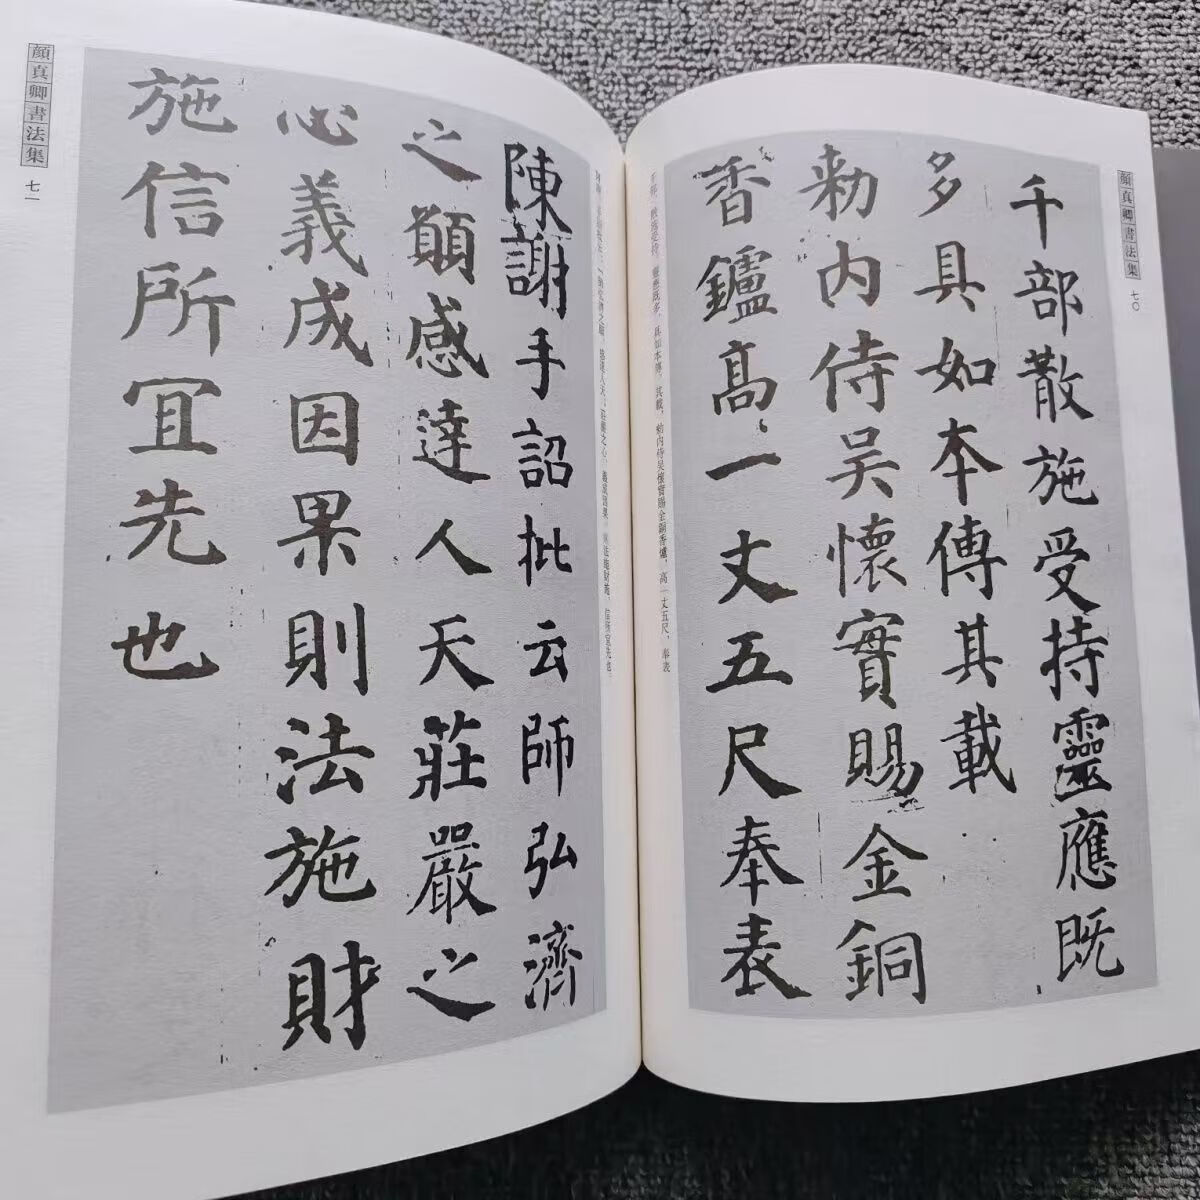 顏真卿書法集
七〇
千部散施受持靈應既
多具如本傳其載
勑内侍吴懷實賜金銅
香鑪高一丈五尺奉表
百部,散施受持,靈應既多,具如本傳。其載,勑内侍吴懷實賜金銅香爐,高一丈五尺,奉表
陳謝手詔批云師弘濟
之願感達人天莊嚴之
心義成因果則法施財
施信所宜先也
師弘濟之願,感達人天;莊嚴之心,義成因果。則法施財施,信所宜先也
顏真卿書法集
七一